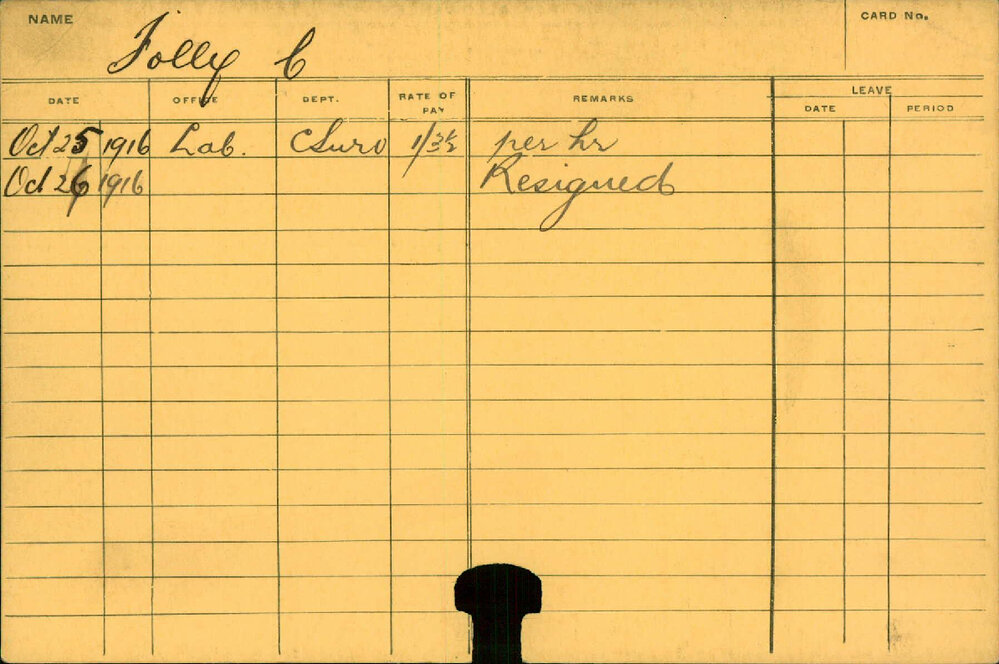 NAME
CARD No.
Folly C
DATE OFFICE DEPT. RATE OF PAY REMARKS LEAVE
DATE PERIOD
Oct 25 1916 Lab. CSurv 1/3½ per hr
Oct 26 1916 Resigned